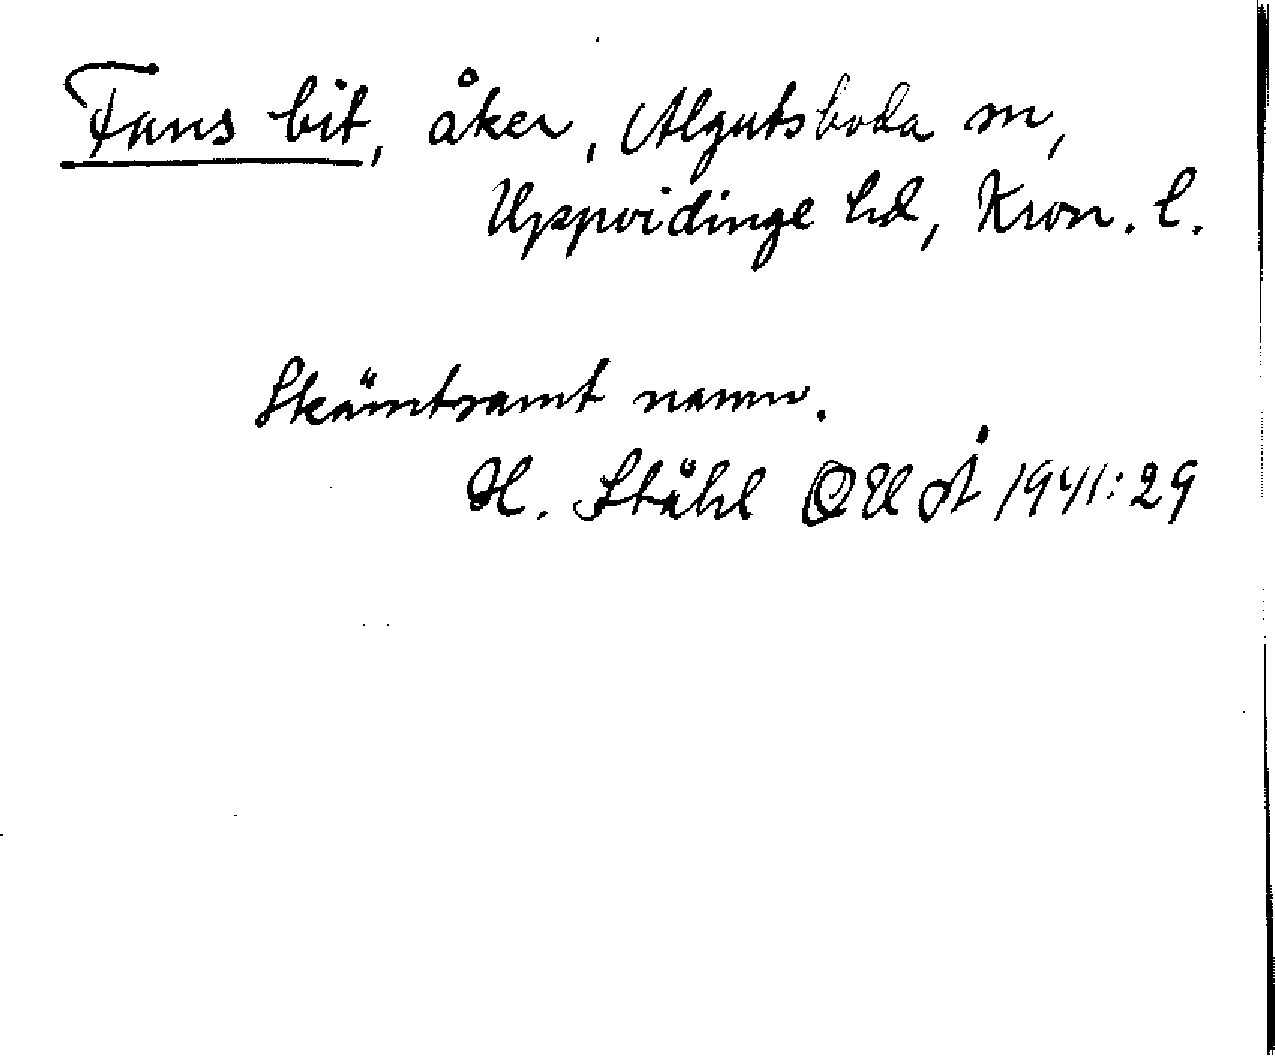 Fans bit, åker, Algutsboda sn,
Uppvidinge hd, Kron. l.
Skämtsamt namn.
H. Ståhl OUÅ 1941:29